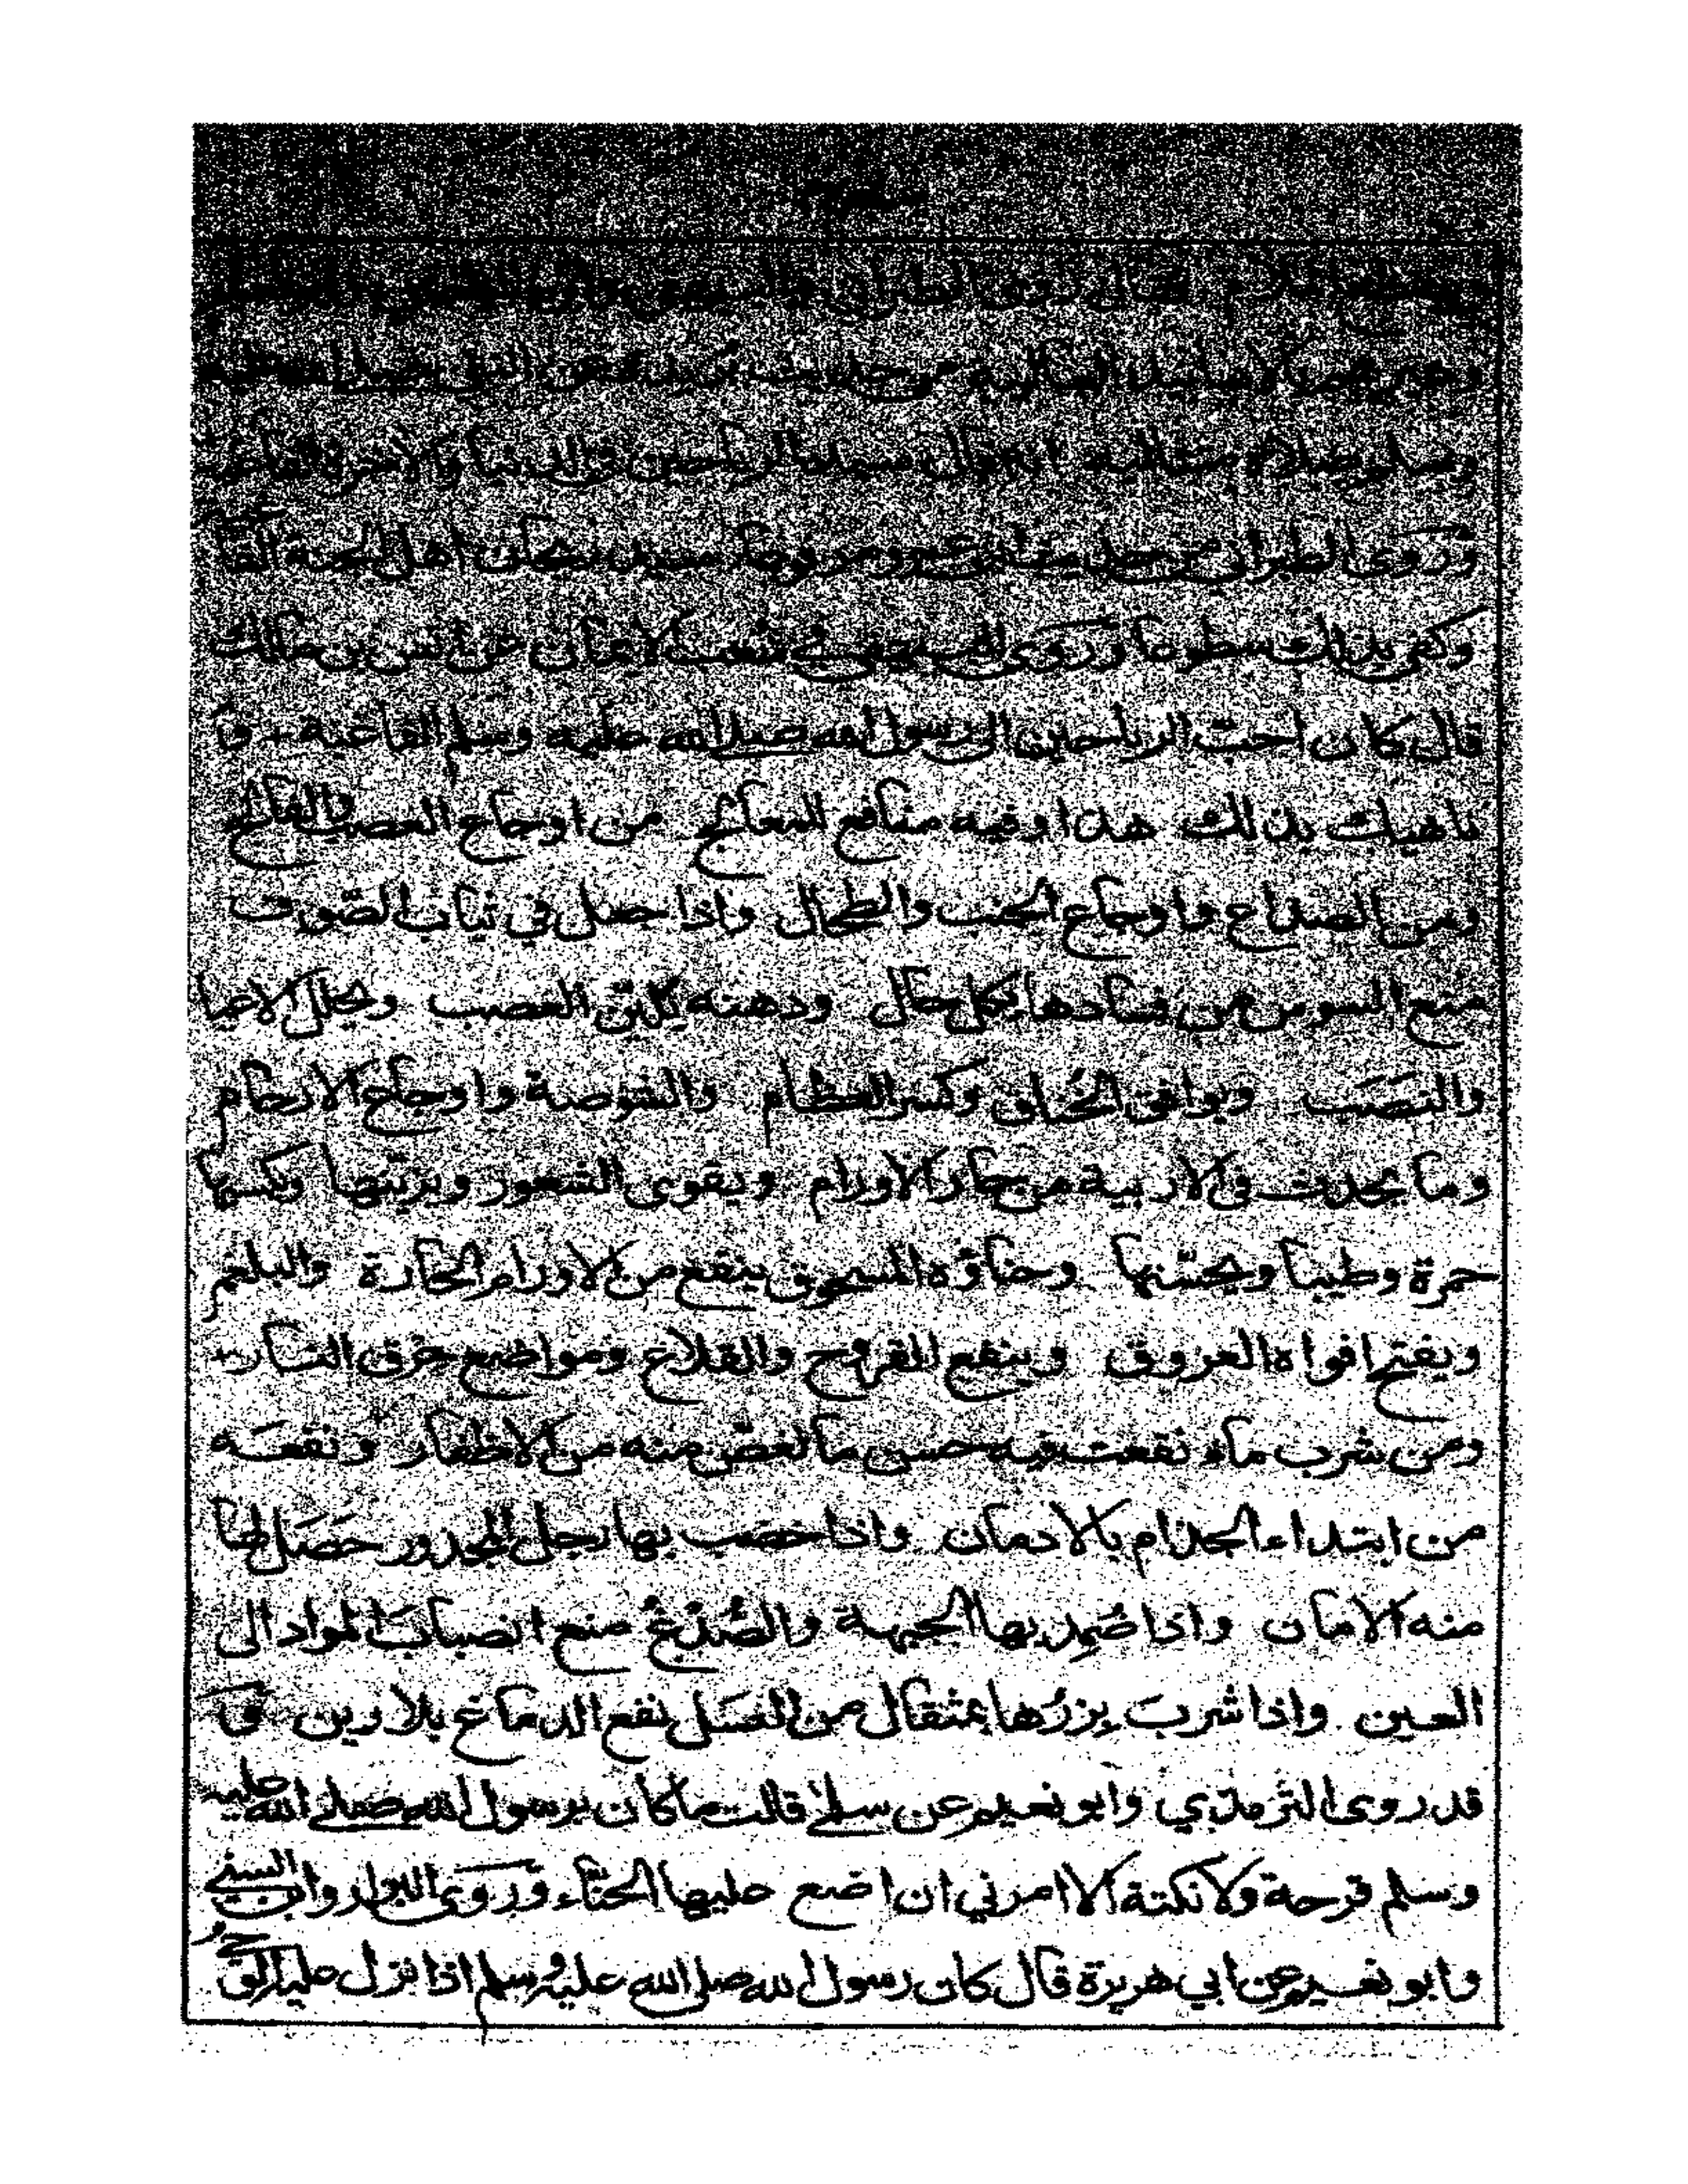 فقال روى الطبراني والبيهقي
وغيرهم من حديث بريدة عن النبي صلى الله عليه
وسلم انه قال سيد الرياحين في الدنيا والاخرة الفاغية
وروى الطبراني عن سيد ريحان اهل الجنة الفا
وكفى بذلك وروى البيهقي في شعب الايمان عن انس بن مالك
قال كان احب الرياحين الى رسول الله صلى الله عليه وسلم الفاغية + وا
ناهيك بذلك هذا وفيه منافع المعالج من اوجاع العصب والفالج
ومن الصداع واوجاع الجنب والطحال واذا جعل في ثياب الصوف
منع السوس من فسادها بكل حال ودهنه يلين العصب ويحلل الاعيا
والنصب ويوافق الخناق وكسر العظام والشوصة واوجاع الارحام
وما يحدث في الاربية من حار الاورام ويقوى الشعور ويزينها ويكسبها
حمرة وطيبا ويحسنها وحناؤه المسحوق ينفع من الاورام الحارة والبلغم
ويفتح افواه العروق وينفع القروح والقلاع ومواضع حرق النار+
ومن شرب ماء نقعت فيه حسن منه من الاظفار ونفعه
من ابتداء الجذام بالادمان واذا خضب بها رجل المجدور حصل لها
منه الامان واذا ضمد بها الجبهة والصدغ منع انصباب المواد الى
العين واذا شرب بزرها بمثقال من العسل نفع الدماغ بلا رين و
قد روى الترمذي وابو نعيم عن سلمى قالت ما كان برسول الله صلى الله عليه
وسلم قرحة ولا نكتة الا امرني ان اضع عليها الحناء وروى البزار وابن السني
وابو نعيم عن ابي هريرة قال كان رسول الله صلى الله عليه وسلم اذا نزل عليه الوحي